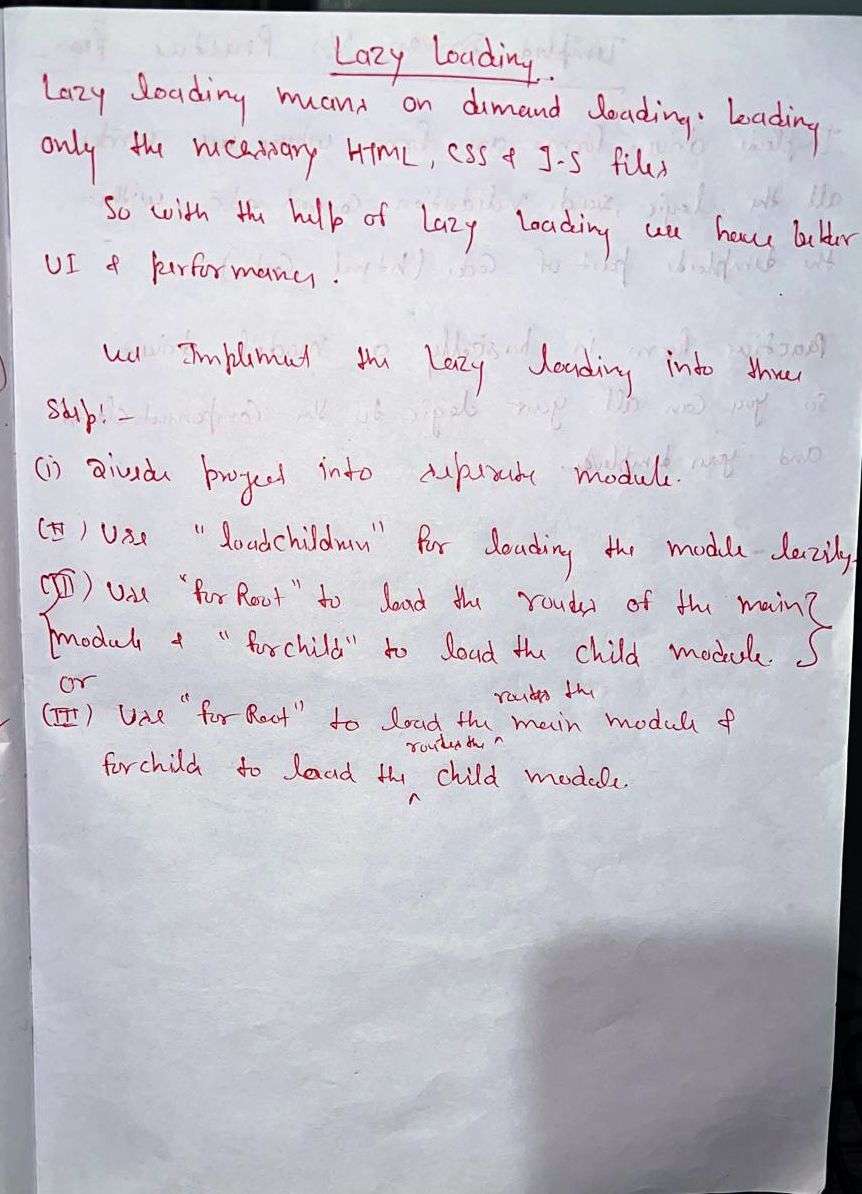 Lazy Loading.
Lazy loading means on demand loading. loading
only the necessary HTML, CSS & J-S files
So with the help of Lazy Loading we have better
UI & performance.
we Implement the Lazy loading into three
Step:-
(i) Divide project into seperate module.
(II) Use "loadchildren" for loading the module lazily.
(III) Use "for Root" to load the routes of the main
module & "forchild" to load the child module.
or
(III) Use "for Root" to load the routes the main module &
forchild to load the routes the child module.